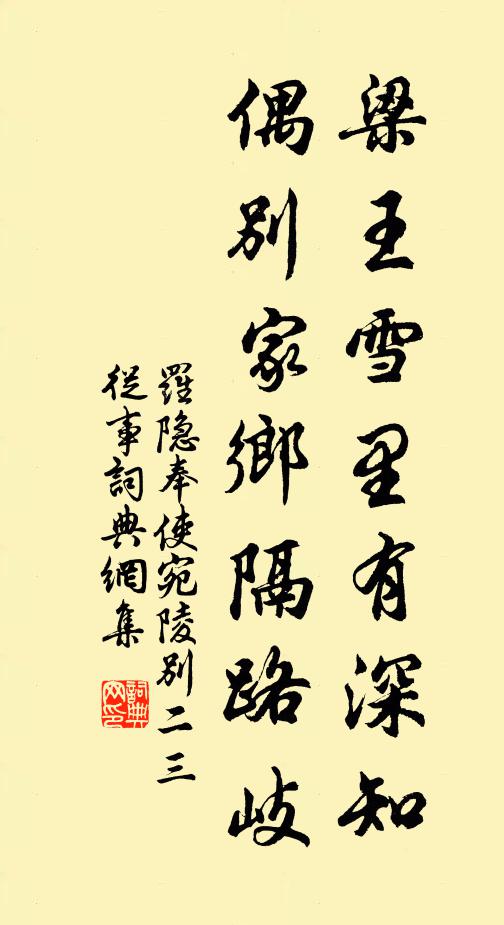 梁王雪里有深知
偶别家鄉隔路歧
羅隐奉使宛陵别二三
從事詞典網集
詞典网印